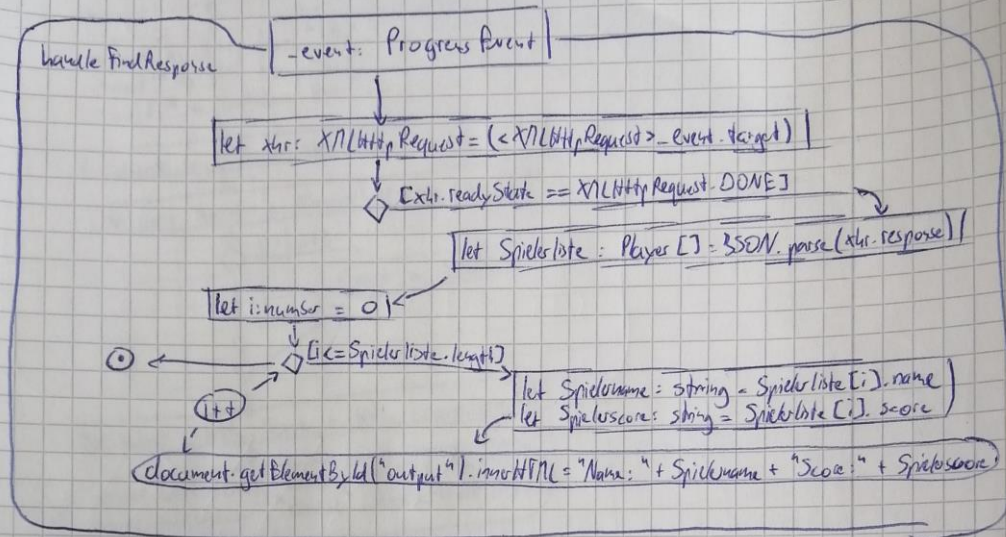 _event: ProgressEvent
handleFindResponse
let xhr: XMLHttpRequest = (<XMLHttpRequest>_event.target)
[xhr.readyState == XMLHttpRequest.DONE]
let Spielerliste : Player[] = JSON.parse(xhr.response)
let i:number = 0
[i<=Spielerliste.length]
let Spielername: string = Spielerliste[i].name
let Spielerscore: string = Spielerliste[i].score
i++
document.getElementById("output").innerHTML = "Name: " + Spielername + "Score:" + Spielerscore